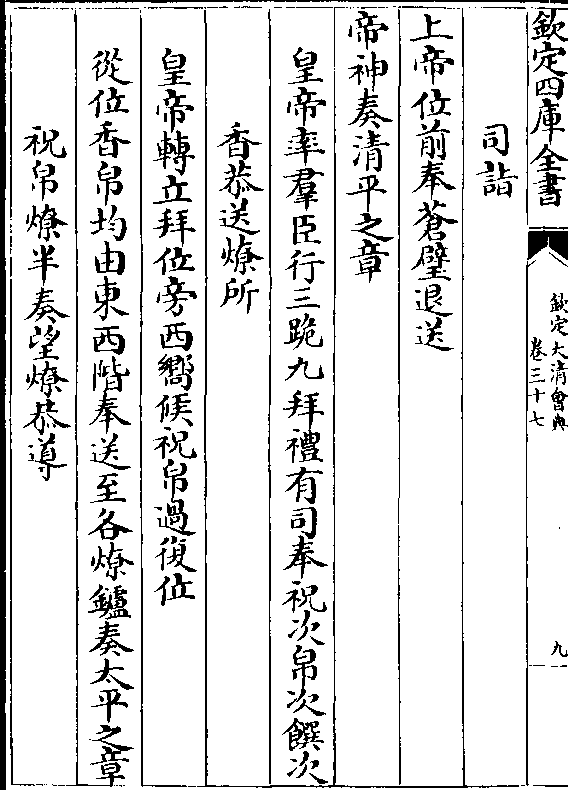 欽定四庫全書
欽定大清會典
卷三十七
九
司詣
上帝位前奉蒼璧退送
帝神奏清平之章
皇帝率羣臣行三跪九拜禮有司奉祝次帛次饌次
香恭送燎所
皇帝轉立拜位旁西嚮候祝帛過復位
從位香帛均由東西階奉送至各燎鑪奏太平之章
祝帛燎半奏望燎恭導